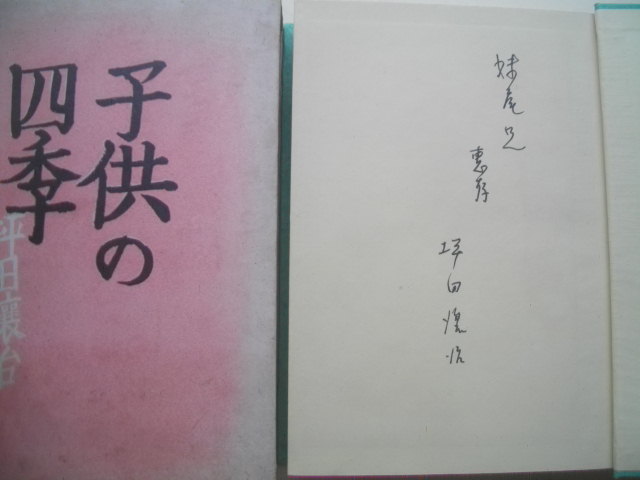 子供の
四季
坪田譲治
妹尾兄
恵存
坪田譲治